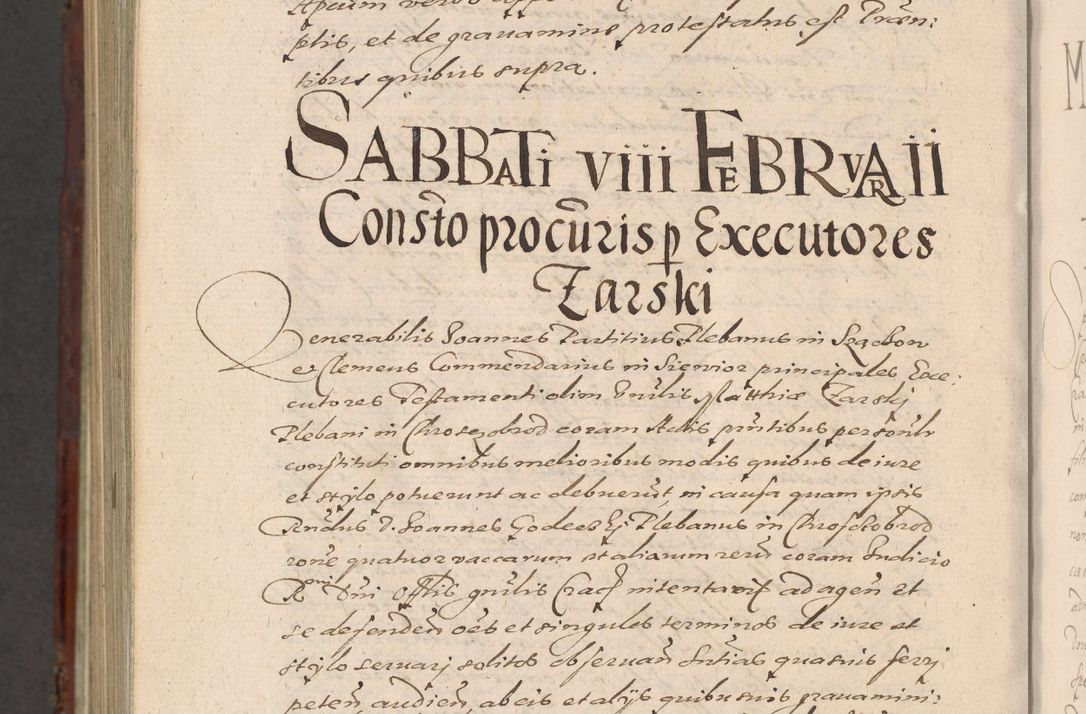 Apcium verbo
ptis, et de gravamine protestatus est Præn:
tibus quibus supra.
SABBATI VIII FEBRVARII
Consto procuris p Executores
Zarski
Venerabilis Ioannes Partitius Plebanus in
et Clemens Commendarius in Siewior principales Exe:
cutores Testamenti olim Vnilis Matthiæ Zarskj
Plebani in Chroszobrod coram Actis pñtibus personlr
constituti omnibus melioribus modis quibus de iure
et stylo potuerunt ac debuerut, in causa quam ipsis
Rndus D. Ioannes Plebanus in Chrosstobrod
rone quatuor vaccarum et aliarum rerū coram Iudicio
R Dni Offlis gnrlis Crac intentavit ad agen et
se defenden oēs et singulos terminos de iure et
stylo servarj solitos observan Sntias quasvis ferrj
peten, audien, ab eis et alijs quibusvis gravamini: